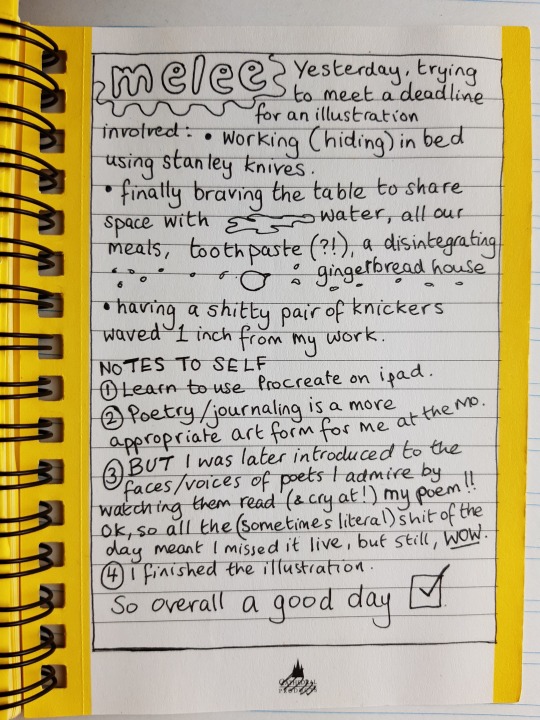 melee Yesterday, trying
to meet a deadline
for an illustration
involved: • working (hiding) in bed
using stanley knives.
• finally braving the table to share
space with water, all our
meals, toothpaste (?!), a disintegrating
gingerbread house
• having a shitty pair of knickers
waved 1 inch from my work.
NOTES TO SELF
① Learn to use Procreate on ipad.
② Poetry/journaling is a more
appropriate art form for me at the mo.
③ BUT I was later introduced to the
faces/voices of poets I admire by
watching them read (& cry at!) my poem!!
Ok, so all the (sometimes literal) shit of the
day meant I missed it live, but still, WOW.
④ I finished the illustration.
So overall a good day ☑